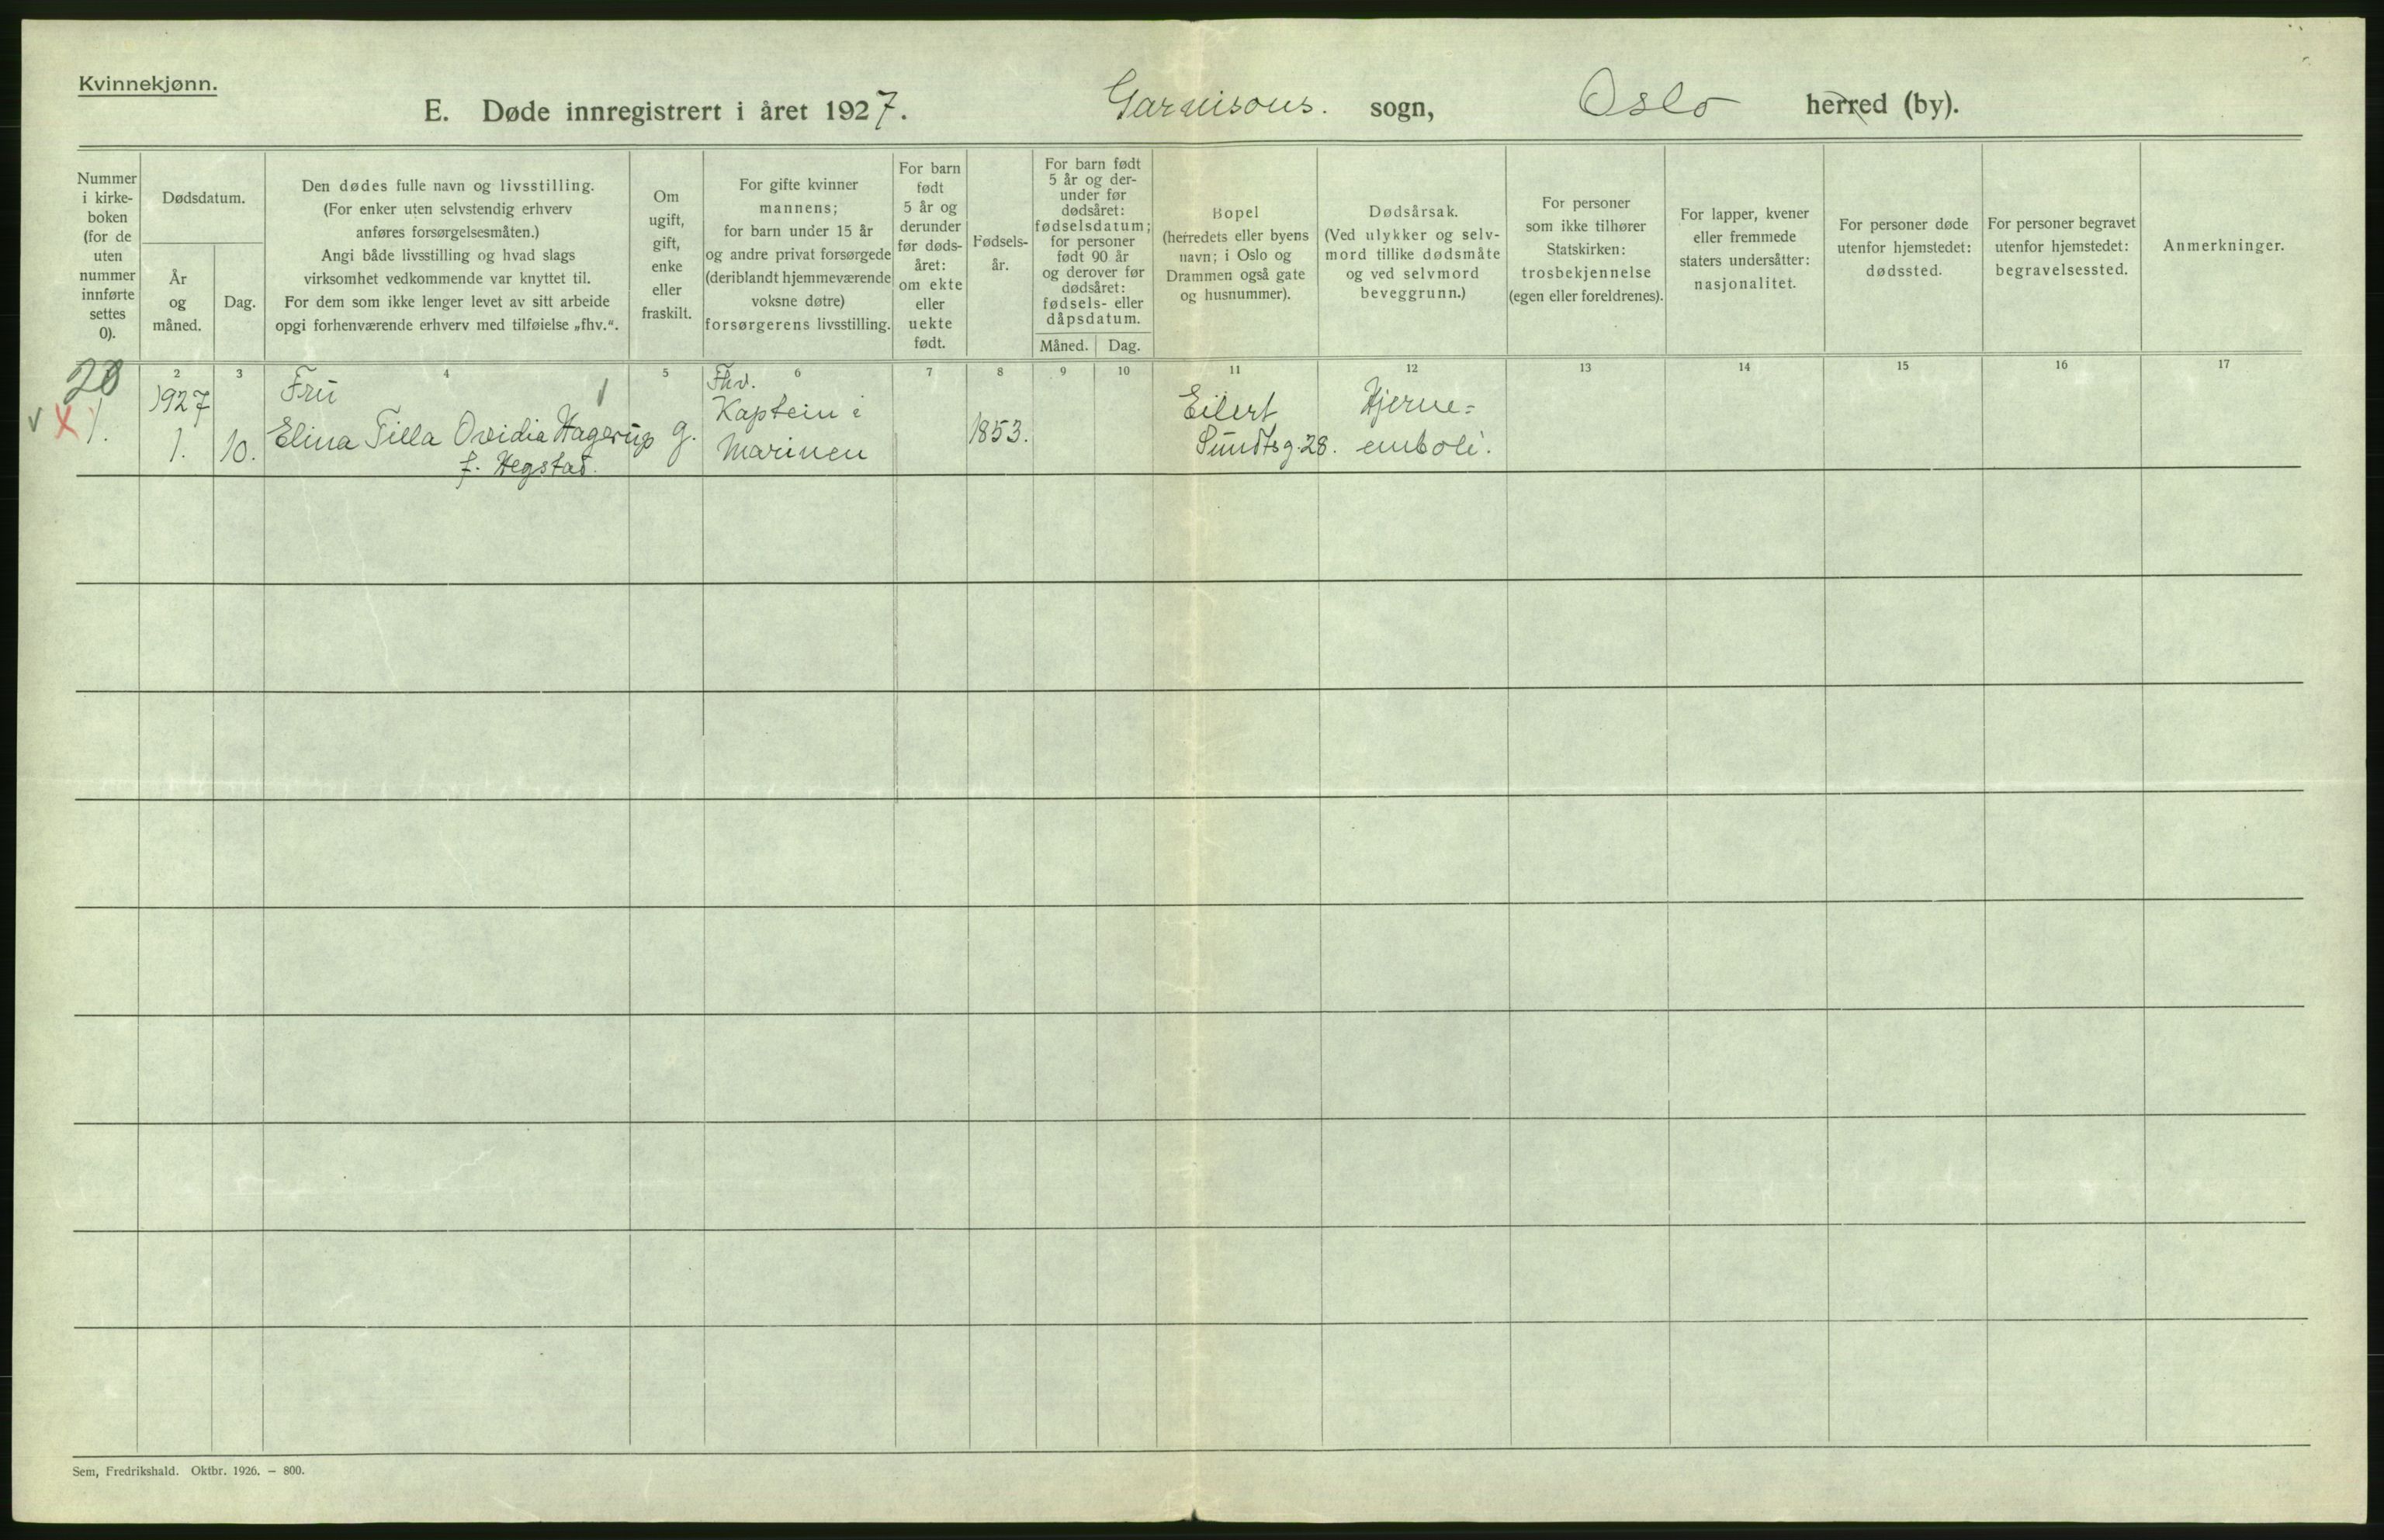 Kvinnekjønn.
E. Døde innregistrert i året 1927. Garnisons. sogn, Oslo herred (by).
Nummer
i kirke-
boken
(for de
uten
nummer
innførte
settes
0).
Dødsdatum.
År
og
måned.
Dag.
Den dødes fulle navn og livsstilling.
(For enker uten selvstendig erhverv
anføres forsørgelsesmåten.)
Angi både livsstilling og hvad slags
virksomhet vedkommende var knyttet til.
For dem som ikke lenger levet av sitt arbeide
opgi forhenværende erhverv med tilføielse „fhv.“.
Om
ugift,
gift,
enke
eller
fraskilt.
For gifte kvinner
mannens;
for barn under 15 år
og andre privat forsørgede
(deriblandt hjemmeværende
voksne døtre)
forsørgerens livsstilling.
For barn
født
5 år og
derunder
før døds-
året:
om ekte
eller
uekte
født.
Fødsels-
år.
For barn født
5 år og der-
under før
dødsåret:
fødselsdatum;
for personer
født 90 år
og derover før
dødsåret:
fødsels- eller
dåpsdatum.
Måned. Dag.
Bopel
(herredets eller byens
navn; i Oslo og
Drammen også gate
og husnummer).
Dødsårsak.
(Ved ulykker og selv-
mord tillike dødsmåte
og ved selvmord
beveggrunn.)
For personer
som ikke tilhører
Statskirken:
trosbekjennelse
(egen eller foreldrenes).
For lapper, kvener
eller fremmede
staters undersåtter:
nasjonalitet.
For personer døde
utenfor hjemstedet:
dødssted.
For personer begravet
utenfor hjemstedet:
begravelsessted.
Anmerkninger.
2 3 4 5 6 7 8 9 10 11 12 13 14 15 16 17
20
1.
1927
1.
10.
Fru
Elina Tilla Ovidia Hagerup
f. Hegstad.
g.
Fhv.
Kaptein i
Marinen
1853.
Eilert
Sundtsg. 28.
Hjerne=
emboli.
Sem, Fredrikshald. Oktbr. 1926. – 800.